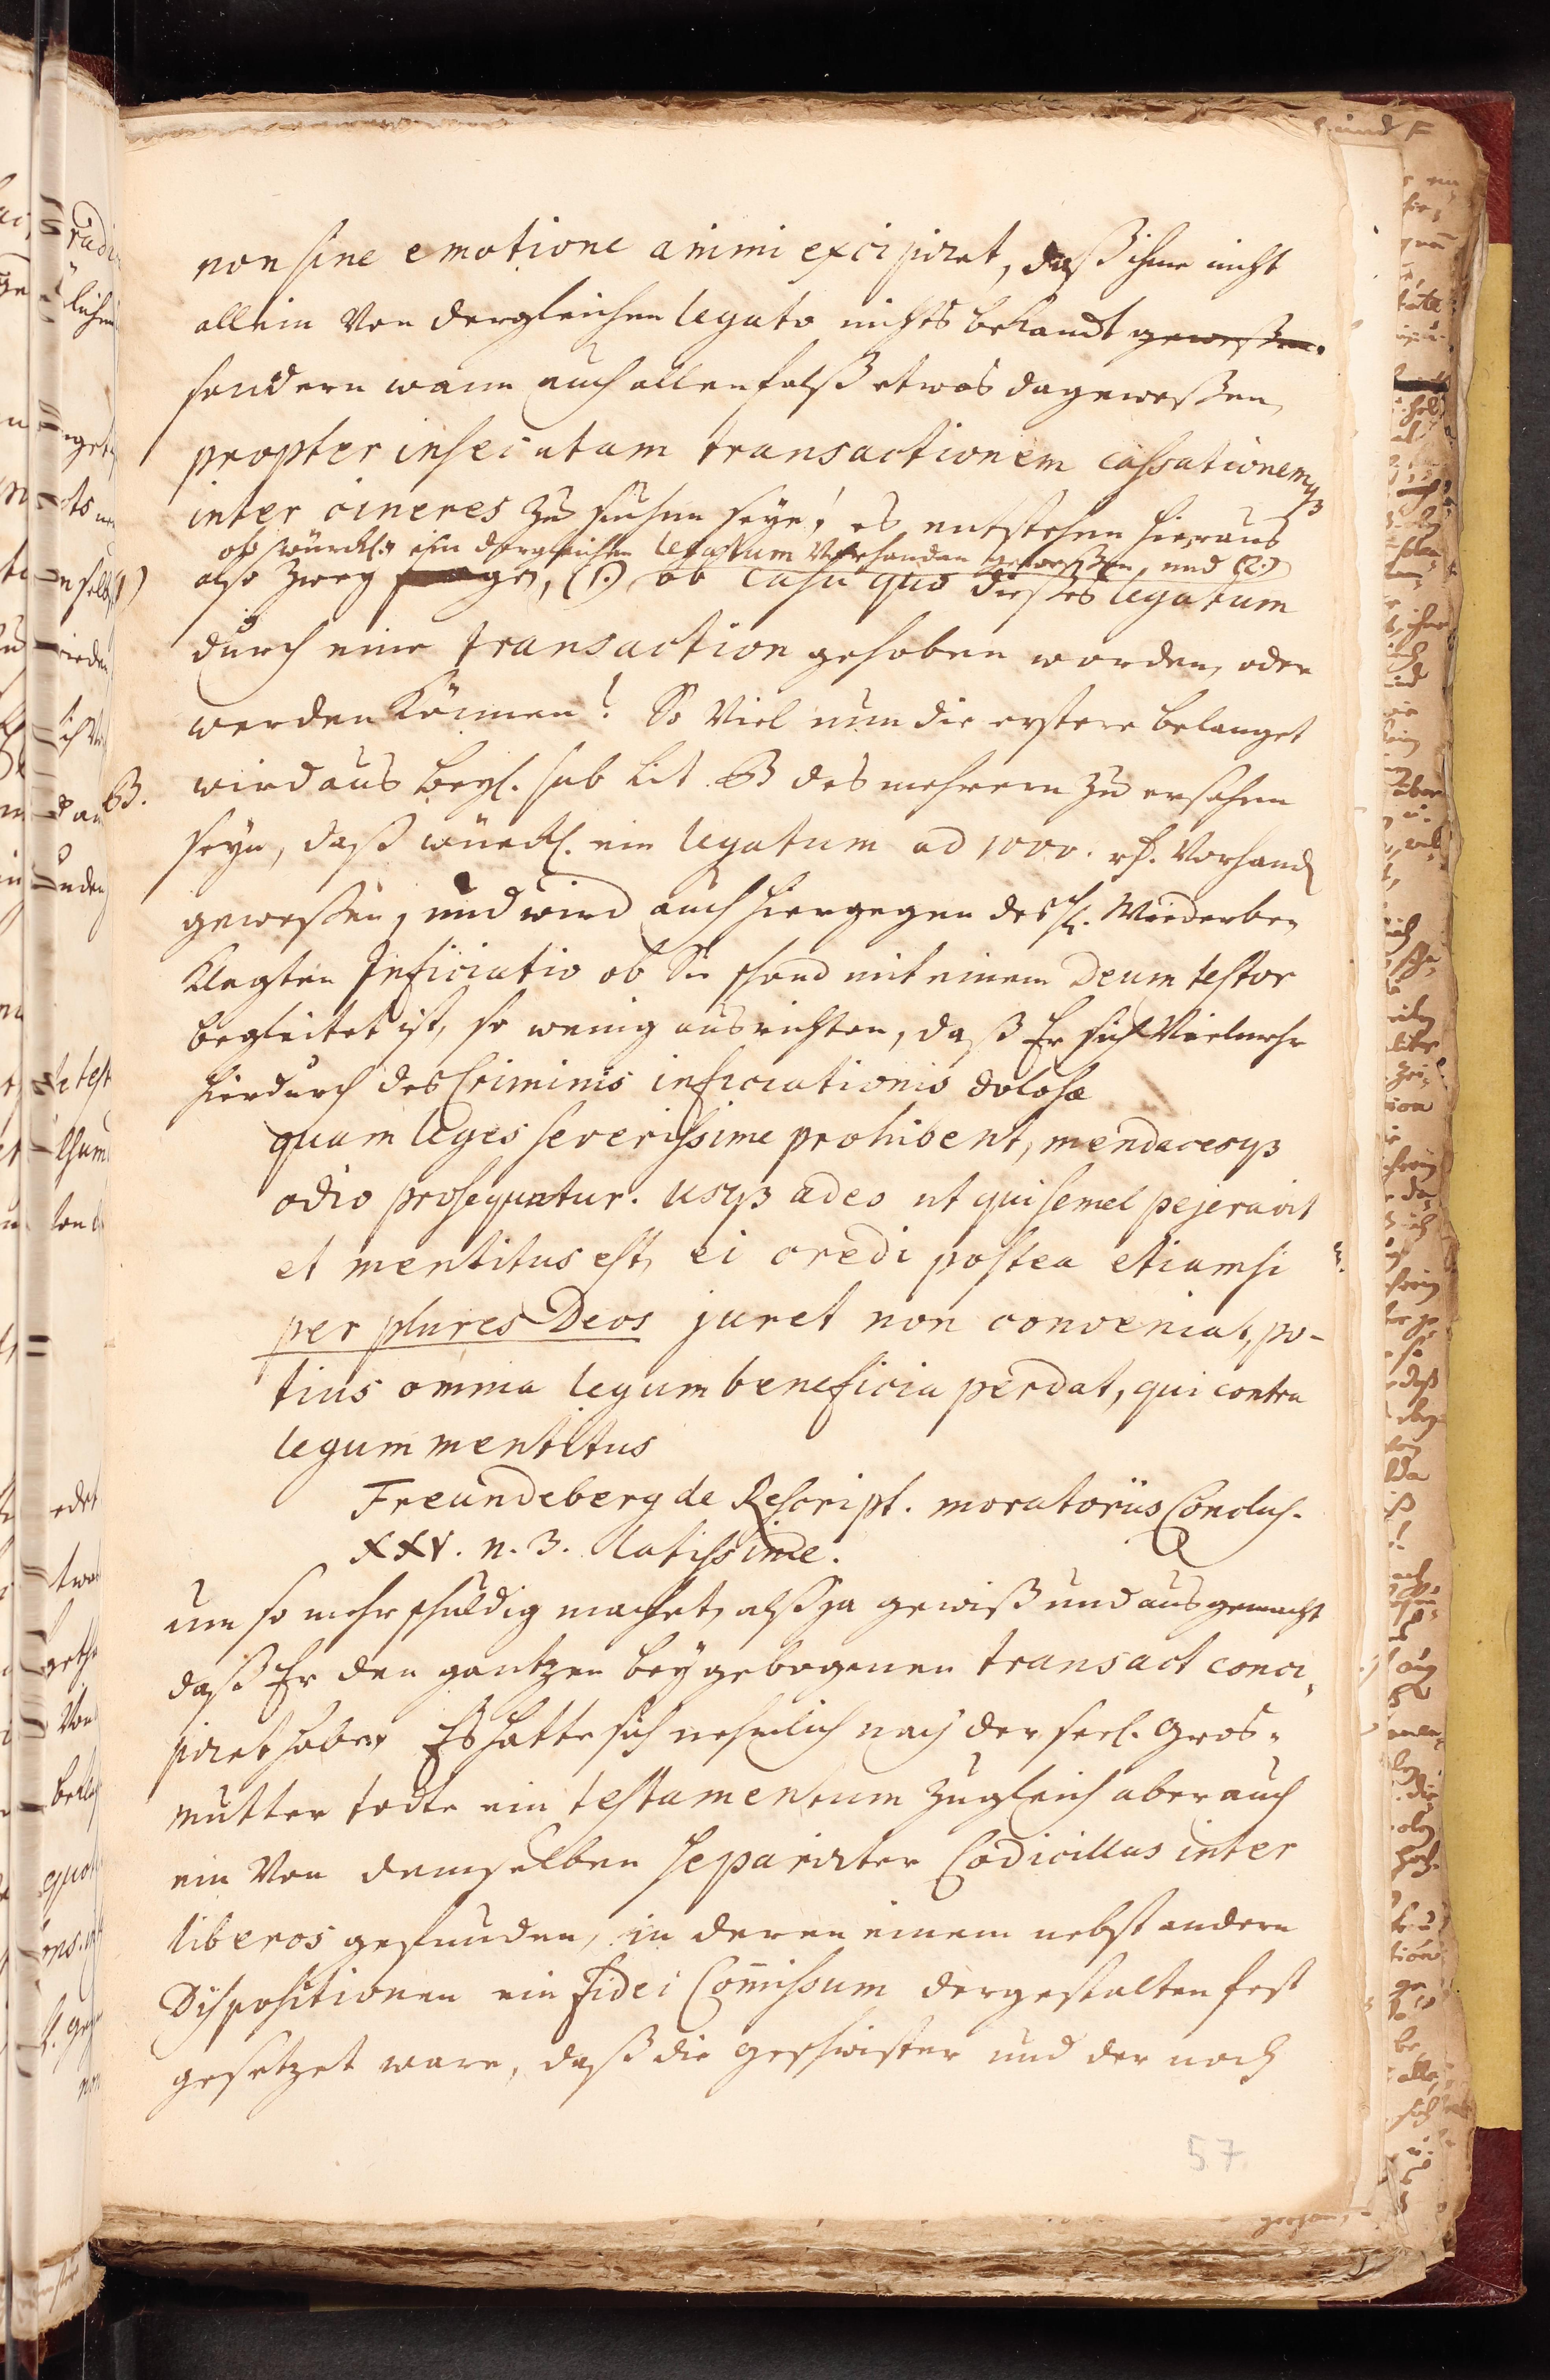 non sine emotione animi excipiret, daß ihme nicht
allein von dergleichen legato nichts bekandt gewesen.
sondern wann auch allenfalß etwas dagewesen,
propter insecutam transactionem cassationemqз
inter cineres zu suchen seye, es entstehen hieraus
ob würckl. ein dergleichen legatum vorhanden gewesen, und (2.)
also zwey fragen, (1.) ob casu quo dieses legatum
durch eine transaction gehoben worden, oder
werden können? So viel nun die erstere belanget
B. wird aus beyl. sub Lit. B des mehrern zu ersehen
seyn, daß würckl. ein legatum ad 1000. rf. vorhand
gewesen, und wird auch hiergegen des H. Wiederbe-
klagten Inficiatio ob Sie schond mit einem Deum testor
begleitet ist, so wenig ausrichten, daß Er sich vielmehr
hierdurch des Criminis inficiationis dolosæ
quam leges severissime prohibent, mendacesqз
odio prosequntur. usqз adeo ut qui semel pejeravit
et mentitus est, ei credi postea etiamsi
per plures Deos juret non conveniat, po-
tius omnia legum beneficia perdat, qui contra
legum mentitus
Freundeberg de Rescript. moratoriis Conclus.
XXV. n. 3. latissime.
um so mehr schuldig machet, alß ja gewiß und ausgemacht
daß Er den gantzen beygebogenen transact conci-
piret habe. Es hatte sich nehmlich nach der seel. Gros-
mutter todte ein testamentum zugleich aber auch
ein von demselben separirter Codicillus inter
liberos gefunden, in deren einem nebst andern
Dispositionen ein fidei Com̄issum dergestalten fest
gesetzet ware, daß die geschwister und der noch
57.